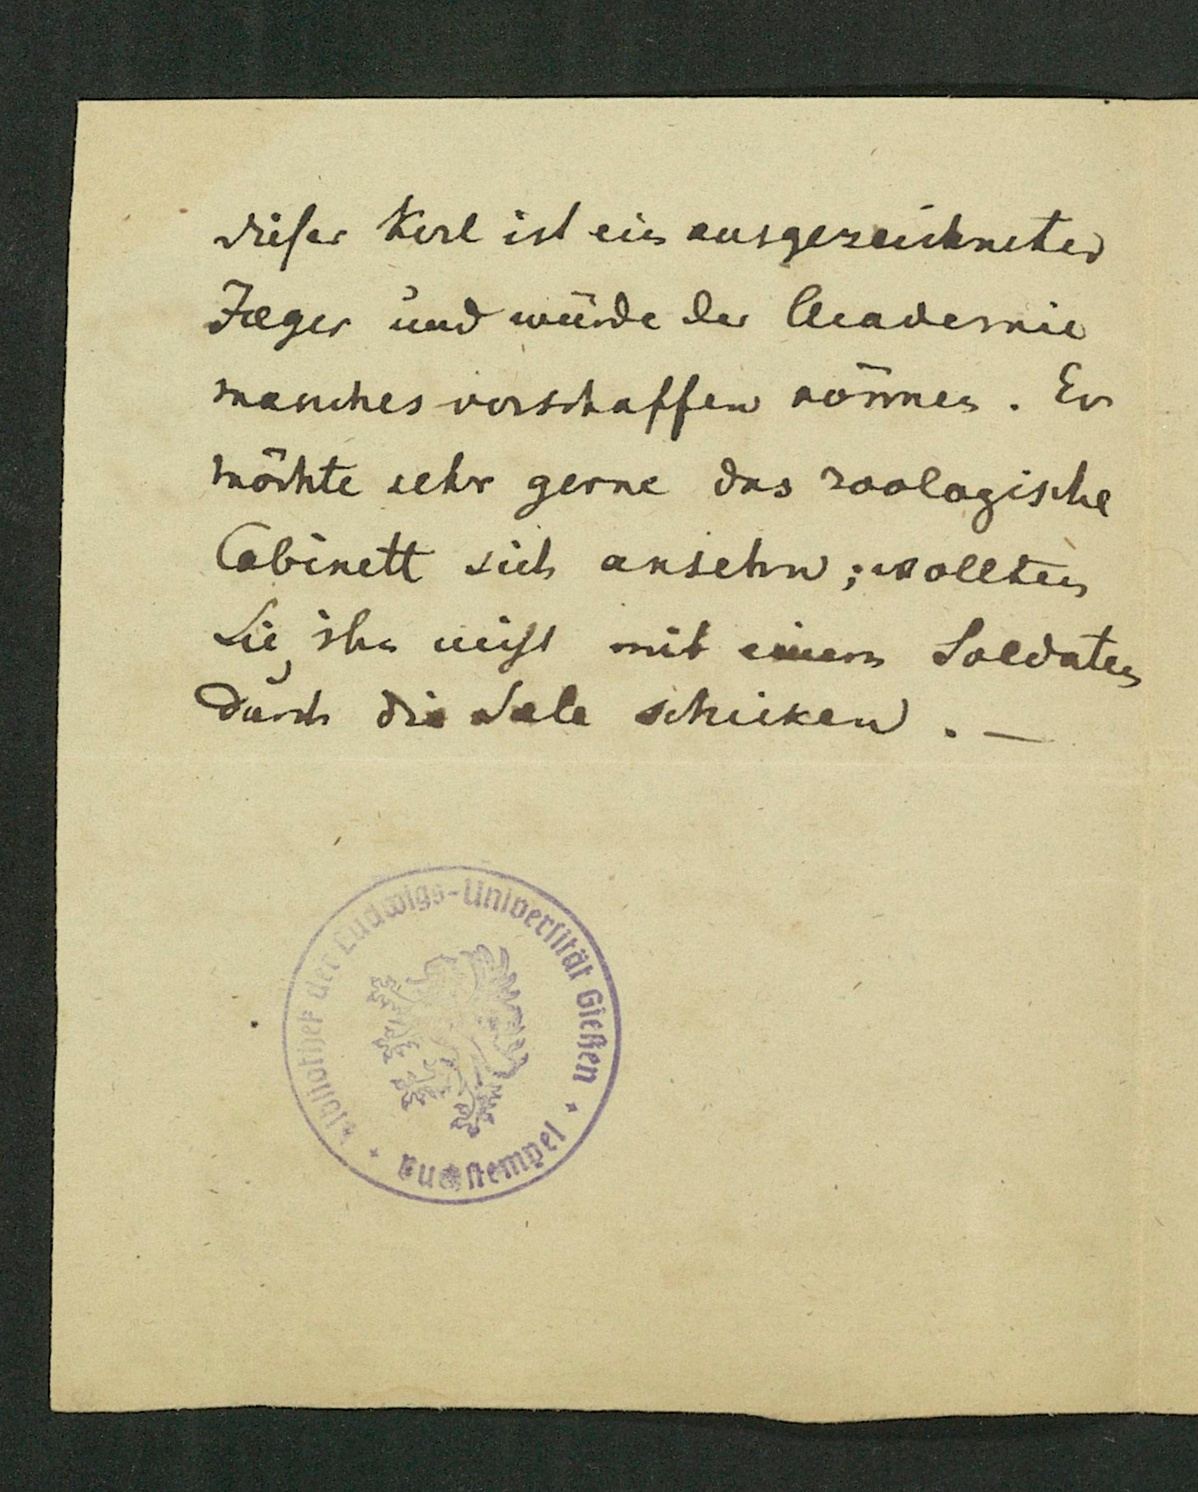 dieser Kerl ist ein ausgezeichneter
Jæger und würde der Academie
manches verschaffen können. Er
möchte sehr gerne das zoologische
Cabinett sich ansehn; wollten
Sie ihn nicht mit einem Soldaten
durch die Sæle schicken. —
Bibliothek der Ludwigs-Universität Gießen
Buchstempel